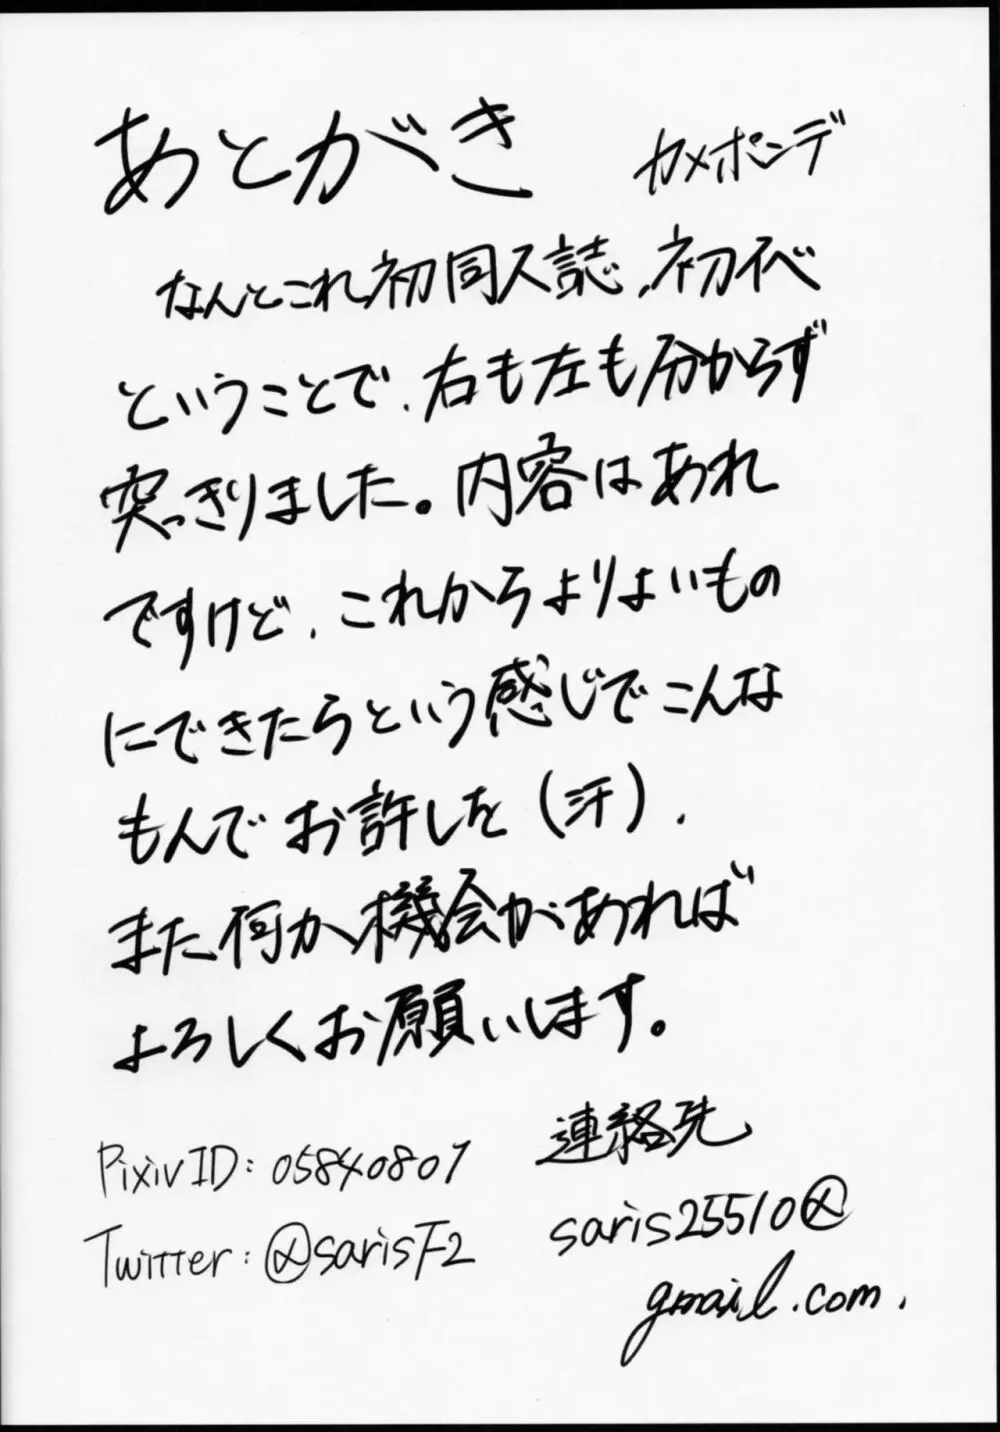 あとがき
カメポンデ
なんとこれ初同人誌、初イベ
ということで、右も左も分からず
突っきりました。内容はあれ
ですけど、これからよりよいもの
にできたらという感じでこんな
もんでお許しを(汗)、
また何か機会があれば
よろしくお願いします。
PixivID: 05840807
Twitter: @sarisF2
連絡先
saris25510@
gmail.com.